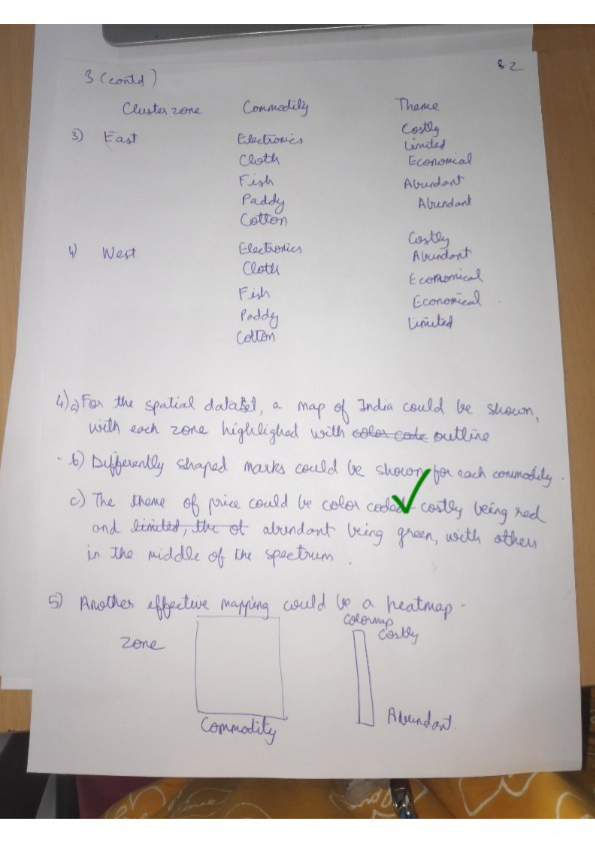 3 (contd)
2
Cluster zone Commodity Theme
3) East Electronics Costly
Cloth Limited
Fish Economical
Paddy Abundant
Cotton Abundant
4) West Electronics Costly
Cloth Abundant
Fish Economical
Paddy Economical
Cotton Limited
4) a) For the spatial dataset, a map of India could be shown,
with each zone highlighed with color code outline
- b) Differently shaped marks could be shown for each commodity.
c) The theme of price could be color coded costly being red
and limited, the ot abundant being green, with others
in the middle of the spectrum.
5) Another effective mapping would be a heatmap.
Zone
Commodity
Colormap
Costly
Abundant.